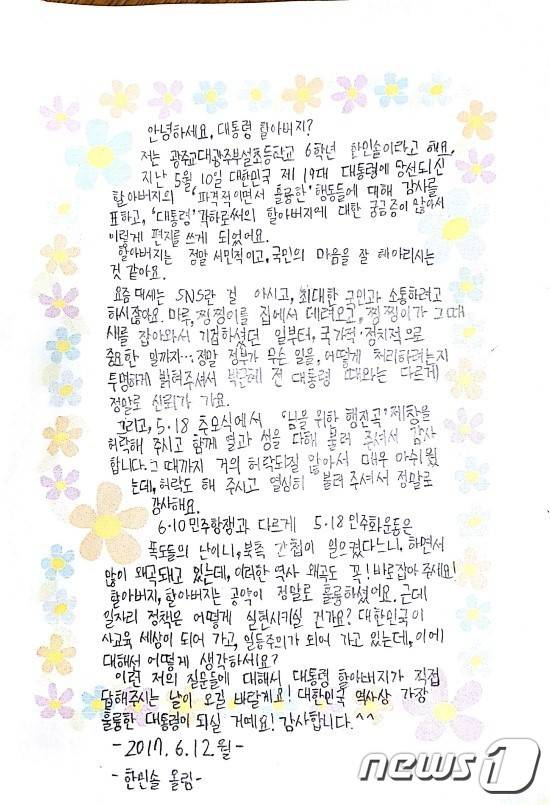 안녕하세요, 대통령 할아버지?
저는 광주교대광주부설초등학교 6학년 한민솔이라고 해요.
지난 5월 10일 대한민국 제 19대 대통령에 당선되신
할아버지의 '파격적이면서 훌륭한' 행동들에 대해 감사를
표하고, '대통령' 각하로써의 할아버지에 대한 궁금증이 많아서
이렇게 편지를 쓰게 되었어요.
할아버지는 정말 서민적이고, 국민의 마음을 잘 헤아리시는
것 같아요.
요즘 대세는 SNS란 걸 아시고, 최대한 국민과 소통하려고
하시잖아요. 마루, 찡찡이를 집에서 데려오고, 찡찡이가 그때
새를 잡아와서 기겁하셨던 일부터, 국가적·정치적으로
중요한 일까지… 정말 정부가 무슨 일을, 어떻게 처리하려는지
투명하게 밝혀주셔서 박근혜 전 대통령 때와는 다르게
정말로 신뢰가 가요.
그리고, 5·18 추모식에서 '님을 위한 행진곡' 제창을
허락해 주시고 함께 열과 성을 다해 불러 주셔서 감사
합니다. 그 때까지 거의 허락되질 않아서 매우 아쉬웠
는데, 허락도 해 주시고 열심히 불러 주셔서 정말로
감사해요.
6·10 민주항쟁과 다르게 5·18 민주화운동은
폭도들의 난이니, 북쪽 간첩이 일으켰다느니, 하면서
많이 왜곡돼고 있는데, 이러한 역사 왜곡도 꼭! 바로잡아 주세요!
할아버지, 할아버지는 공약이 정말로 훌륭하셨어요. 근데
일자리 정책은 어떻게 실현시키실 건가요? 대한민국이
사교육 세상이 되어 가고, 일등주의가 되어 가고 있는데, 이에
대해서 어떻게 생각하세요?
이런 저의 질문들에 대해서 대통령 할아버지가 직접
답해주시는 날이 오길 바랄게요! 대한민국 역사상 가장
훌륭한 대통령이 되실 거예요! 감사합니다.^^
-2017.6.12월-
-한민솔 올림-
news1